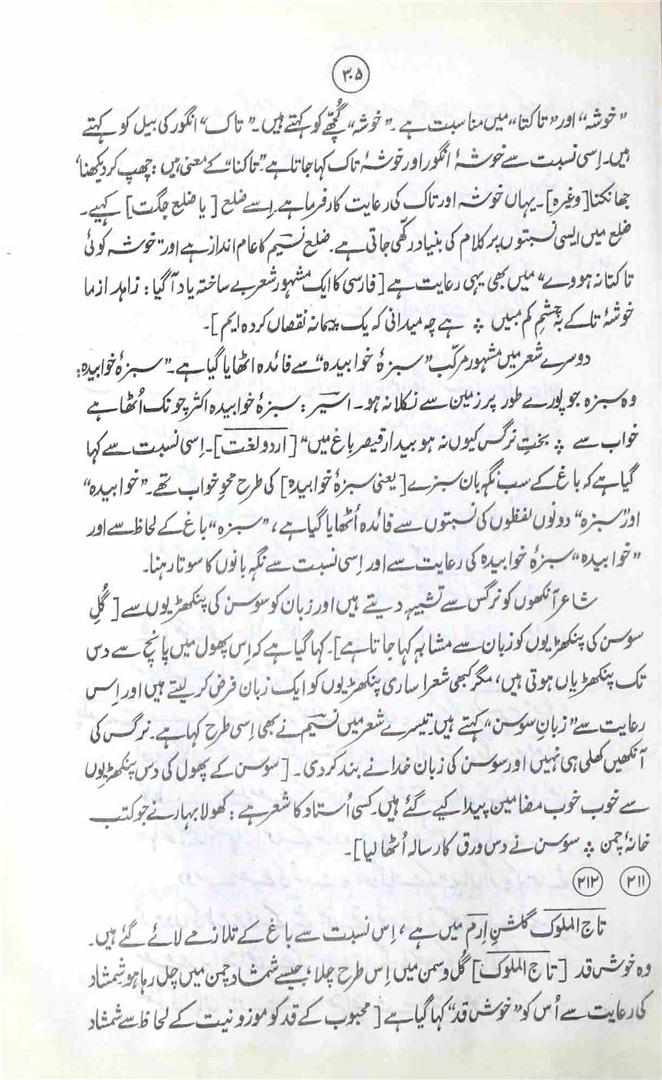 ۳۰۵
”خوشہ“ اور ”تاکتا“ میں مناسبت ہے۔ ”خوشہ“ گُچّھے کو کہتے ہیں۔ ”تاک“ انگور کی بیل کو کہتے
ہیں۔ اِسی نسبت سے خوشۂ انگور اور خوشۂ تاک کہا جاتا ہے۔ ”تاکنا“ کے معنی ہیں : چھپ کر دیکھنا،
جھانکنا [وغیرہ]۔ یہاں خوشہ اور تاک کی رعایت کارفرما ہے۔ اِسے ضلع [یا ضلع جگت] کہیے۔
ضلع میں ایسی نسبتوں پر کلام کی بنیاد رکھی جاتی ہے۔ ضلع نسیم کا عام انداز ہے اور ”خوشہ کوئی
تاکتا نہ ہووے“ میں بھی یہی رعایت ہے [فارسی کا ایک مشہور شعر بے ساختہ یاد آگیا : زاہد از ما
خوشۂ تاکے بہ چشمِ کم مبیں ؞ ہے چہ میدانی کہ یک پیمانہ نقصاں کردہ ایم]۔
دوسرے شعر میں مشہور مرکّب ”سبزۂ خوابیدہ“ سے فائدہ اٹھایا گیا ہے۔ ”سبزۂ خوابیدہ:
وہ سبزہ جو پورے طور پر زمین سے نکلا نہ ہو۔ اسیر : سبزۂ خوابیدہ اکثر چونک اُٹھا ہے
خواب سے ؞ بختِ نرگس کیوں نہ ہو بیدار قیصر باغ میں“ [اردو لغت]۔ اِسی نسبت سے کہا
گیا ہے کہ باغ کے سب نگہبان سبزے [یعنی سبزۂ خوابیدہ] کی طرح محوِ خواب تھے۔ ”خوابیدہ“
اور ”سبزہ“ دونوں لفظوں کی نسبتوں سے فائدہ اُٹھایا گیا ہے، ”سبزہ“ باغ کے لحاظ سے اور
”خوابیدہ“ سبزۂ خوابیدہ کی رعایت سے اور اِسی نسبت سے نگہبانوں کا سوتا رہنا۔
شاعر آنکھوں کو نرگس سے تشبیہ دیتے ہیں اور زبان کو سوسن کی پنکھڑیوں سے [گُلِ
سوسن کی پنکھڑیوں کو زبان سے مشابہ کہا جاتا ہے]۔ کہا گیا ہے کہ اِس پھول میں پانچ سے دس
تک پنکھڑیاں ہوتی ہیں، مگر کبھی شعرا ساری پنکھڑیوں کو ایک زبان فرض کر لیتے ہیں اور اِس
رعایت سے ”زبانِ سوسن“ کہتے ہیں۔ تیسرے شعر میں نسیم نے بھی اِسی طرح کہا ہے۔ نرگس کی
آنکھیں کھلی ہی نہیں اور سوسن کی زبان خدا نے بند کر دی۔ [سوسن کے پھول کی دس پنکھڑیوں
سے خوب خوب مضامین پیدا کیے گئے ہیں۔ کسی اُستاد کا شعر ہے : کھولا بہار نے جو کتب
خانۂ چمن ؞ سوسن نے دس ورق کا رسالہ اُٹھا لیا]۔
۲۱۱ ۲۱۲
تاج الملوک گلشنِ اِرم میں ہے، اِس نسبت سے باغ کے تلازمے لائے گئے ہیں۔
وہ خوش قد [تاج الملوک] گُل و سمن میں اِس طرح چلا، جیسے شمشاد چمن میں چل رہا ہو۔ شمشاد
کی رعایت سے اُس کو ”خوش قد“ کہا گیا ہے [محبوب کے قد کو موزونیت کے لحاظ سے شمشاد